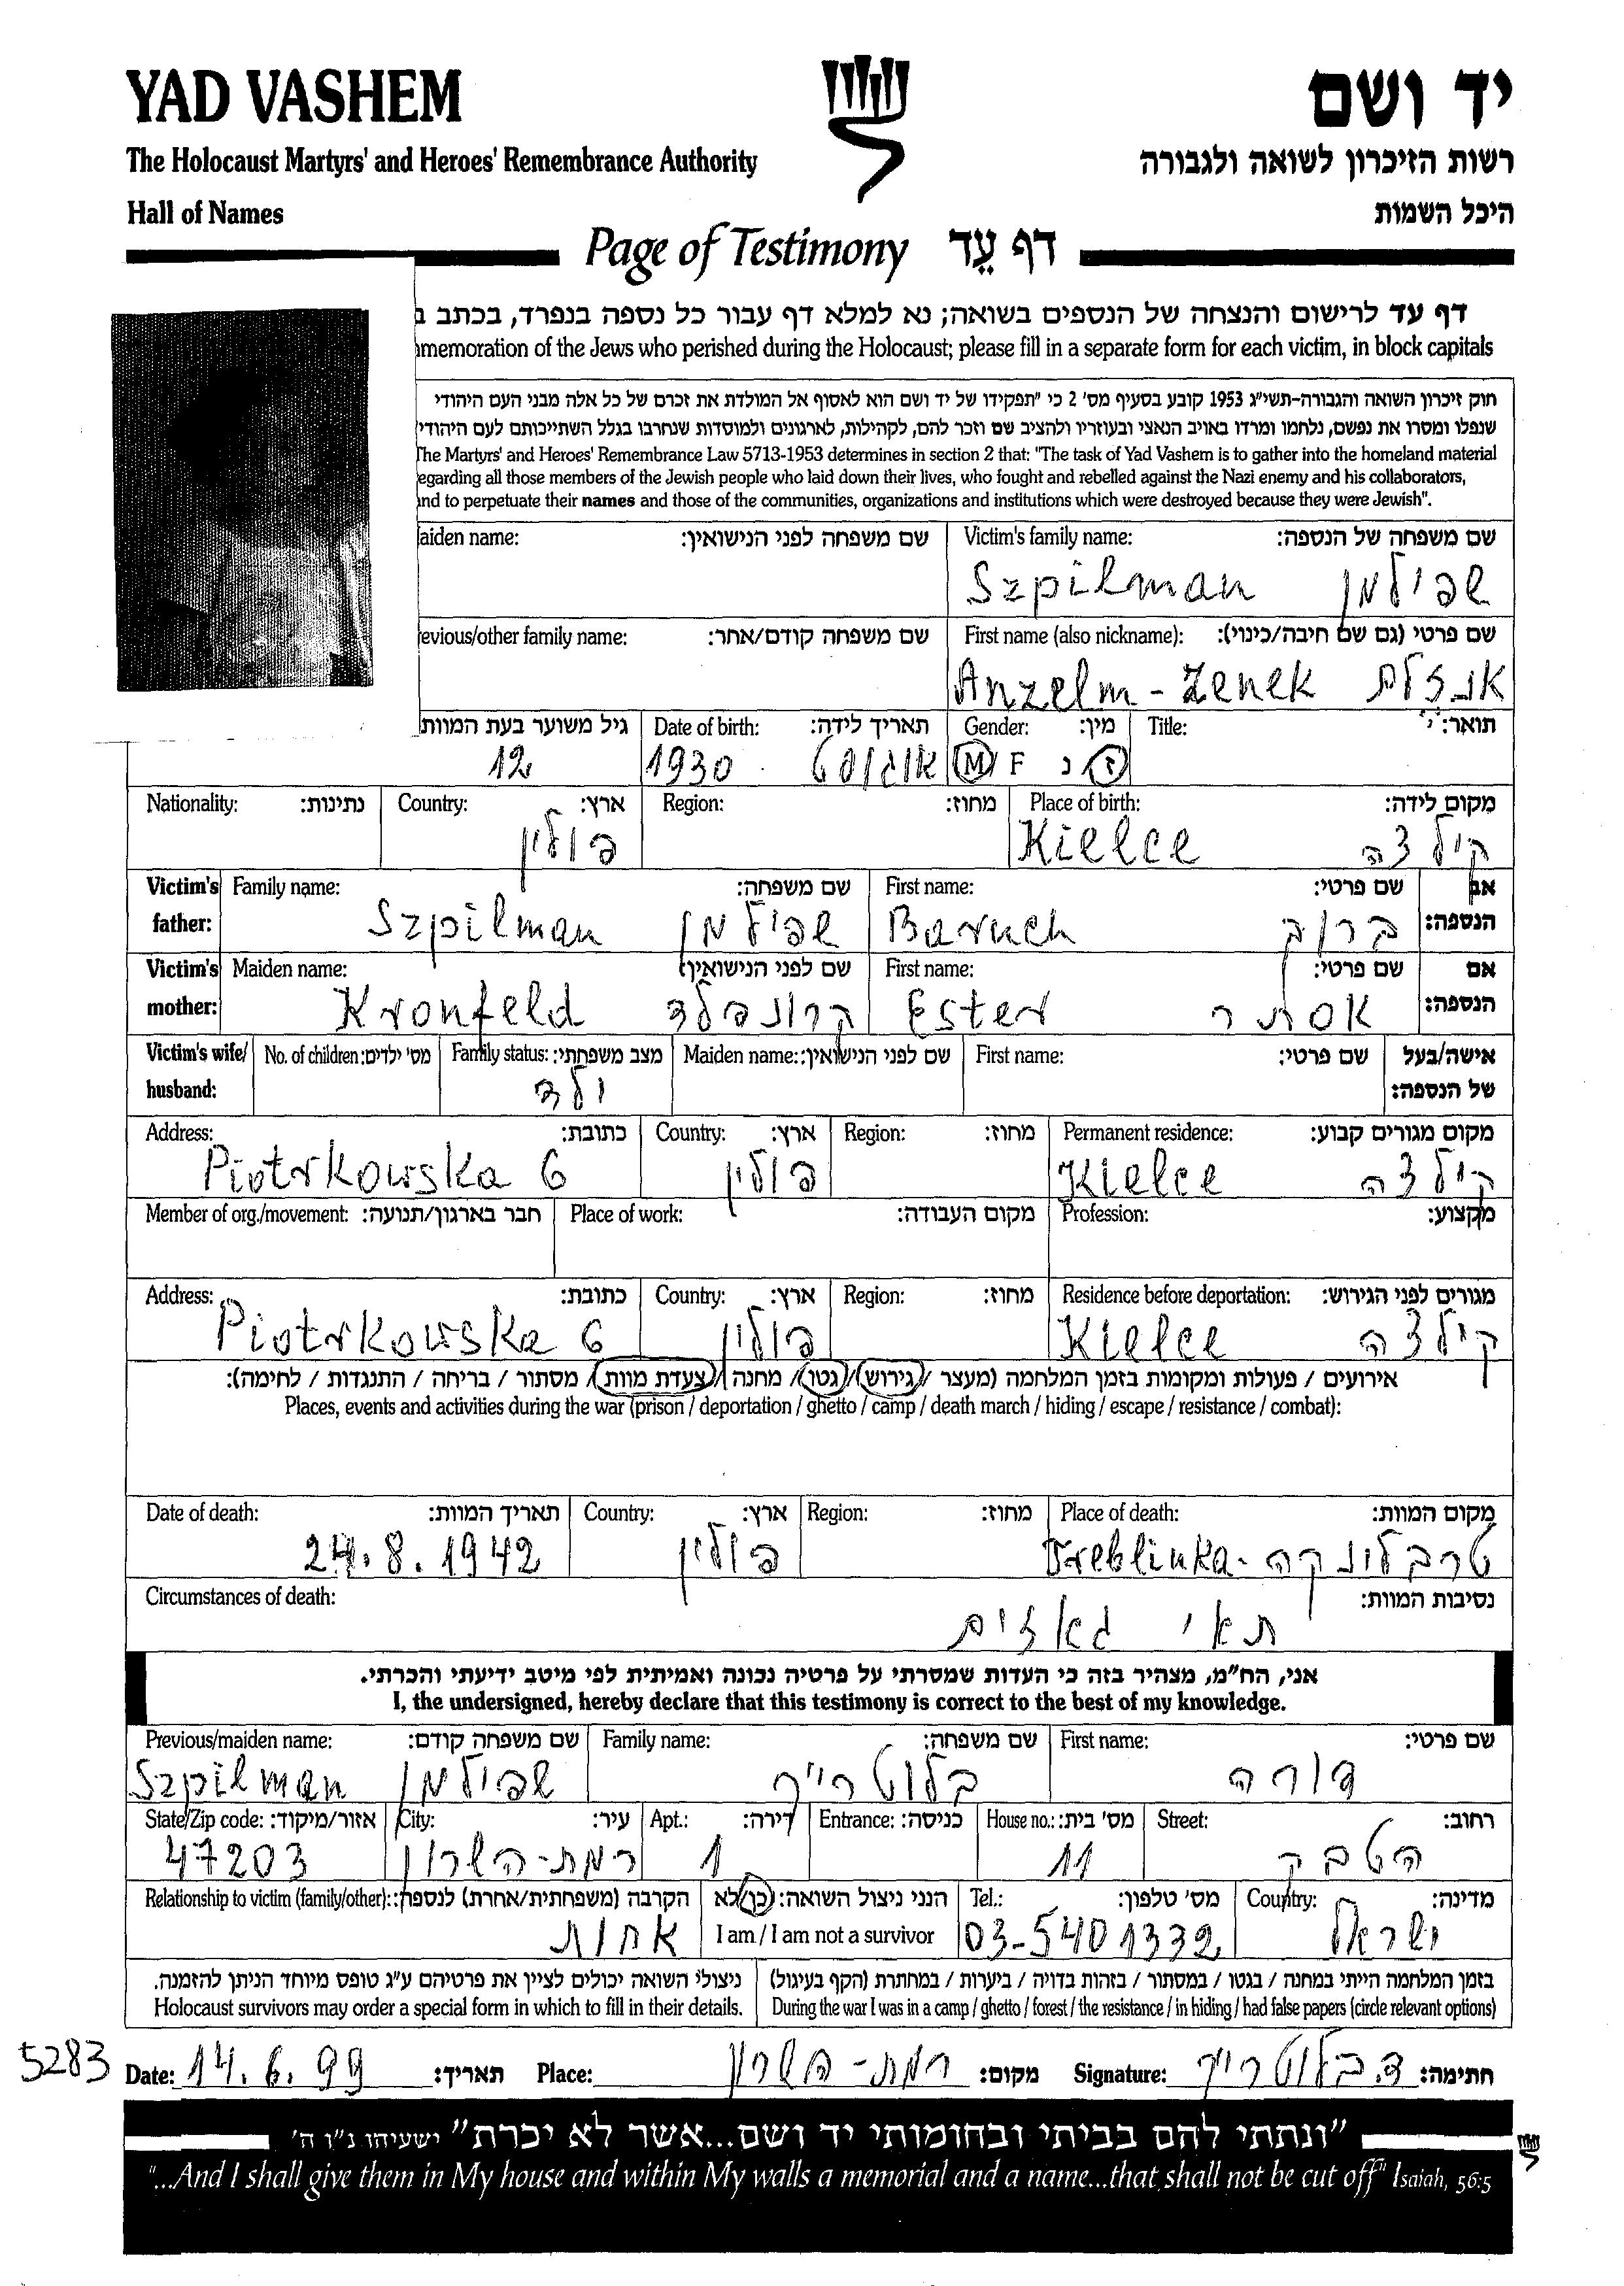 YAD VASHEM
יד ושם
The Holocaust Martyrs' and Heroes' Remembrance Authority
רשות הזיכרון לשואה ולגבורה
Hall of Names
היכל השמות
Page of Testimony דף עֵד
דף עד לרישום והנצחה של הנספים בשואה; נא למלא דף עבור כל נספה בנפרד, בכתב ב
memoration of the Jews who perished during the Holocaust; please fill in a separate form for each victim, in block capitals
חוק זיכרון השואה והגבורה-תשי"ג 1953 קובע בסעיף מס' 2 כי "תפקידו של יד ושם הוא לאסוף אל המולדת את זכרם של כל אלה מבני העם היהודי
שנפלו ומסרו את נפשם, נלחמו ומרדו באויב הנאצי ובעוזריו ולהציב שם וזכר להם, לקהילות, לארגונים ולמוסדות שנחרבו בגלל השתייכותם לעם היהודי
The Martyrs' and Heroes' Remembrance Law 5713-1953 determines in section 2 that: "The task of Yad Vashem is to gather into the homeland material
egarding all those members of the Jewish people who laid down their lives, who fought and rebelled against the Nazi enemy and his collaborators,
and to perpetuate their names and those of the communities, organizations and institutions which were destroyed because they were Jewish".
aiden name: שם משפחה לפני הנישואין: Victim's family name: שם משפחה של הנספה:
Szpilman שפילמן
evious/other family name: שם משפחה קודם/אחר: First name (also nickname): שם פרטי (גם שם חיבה/כינוי):
Anzelm - Zenek אנזלם
גיל משוער בעת המוות Date of birth: תאריך לידה: Gender: מין: Title: תואר:
12 1930 אוגוסט M F נ ז
Nationality: נתינות: Country: ארץ: Region: מחוז: Place of birth: מקום לידה:
פולין Kielce קילצה
Victim's father: Family name: שם משפחה: First name: שם פרטי: אב הנספה:
Szpilman שפילמן Baruch ברוך
Victim's mother: Maiden name: שם לפני הנישואין: First name: שם פרטי: אם הנספה:
Kronfeld קרונפלד Ester אסתר
Victim's wife/ husband: No. of children: מס' ילדים: Family status: מצב משפחתי: Maiden name: שם לפני הנישואין: First name: שם פרטי: אישה/בעל של הנספה:
ילד
Address: כתובת: Country: ארץ: Region: מחוז: Permanent residence: מקום מגורים קבוע:
Piotrkowska 6 פולין Kielce קילצה
Member of org./movement: חבר בארגון/תנועה: Place of work: מקום העבודה: Profession: מקצוע:
Address: כתובת: Country: ארץ: Region: מחוז: Residence before deportation: מגורים לפני הגירוש:
Piotrkowska 6 פולין Kielce קילצה
אירועים / פעולות ומקומות בזמן המלחמה (מעצר / גירוש / גטו / מחנה / צעדת מוות / מסתור / בריחה / התנגדות / לחימה):
Places, events and activities during the war (prison / deportation / ghetto / camp / death march / hiding / escape / resistance / combat):
Date of death: תאריך המוות: Country: ארץ: Region: מחוז: Place of death: מקום המוות:
24.8.1942 פולין Treblinka - טרבלינקה
Circumstances of death: נסיבות המוות:
תאי גאזים
אני, הח"מ, מצהיר בזה כי העדות שמסרתי על פרטיה נכונה ואמיתית לפי מיטב ידיעתי והכרתי.
I, the undersigned, hereby declare that this testimony is correct to the best of my knowledge.
Previous/maiden name: שם משפחה קודם: Family name: שם משפחה: First name: שם פרטי:
Szpilman שפילמן בלוטרייך דורה
State/Zip code: אזור/מיקוד: City: עיר: Apt.: דירה: Entrance: כניסה: House no.: מס' בית: Street: רחוב:
47203 רמת-השרון 1 11 הטבק
Relationship to victim (family/other): הקרבה (משפחתית/אחרת) לנספה: הנני ניצול השואה: כן/לא Tel.: מס' טלפון: Country: מדינה:
אחות I am / I am not a survivor 03-5401332 ישראל
ניצולי השואה יכולים לציין את פרטיהם ע"ג טופס מיוחד הניתן להזמנה. בזמן המלחמה הייתי במחנה / בגטו / במסתור / בזהות בדויה / ביערות / במחתרת (הקף בעיגול)
Holocaust survivors may order a special form in which to fill in their details. During the war I was in a camp / ghetto / forest / the resistance / in hiding / had false papers (circle relevant options)
5283 Date: 14.6.99 תאריך: Place: רמת-השרון מקום: Signature: ד.בלוטרייך חתימה:
"ונתתי להם בביתי ובחומותי יד ושם...אשר לא יכרת" ישעיהו נ"ו ה'
"...And I shall give them in My house and within My walls a memorial and a name...that shall not be cut off" Isaiah, 56:5